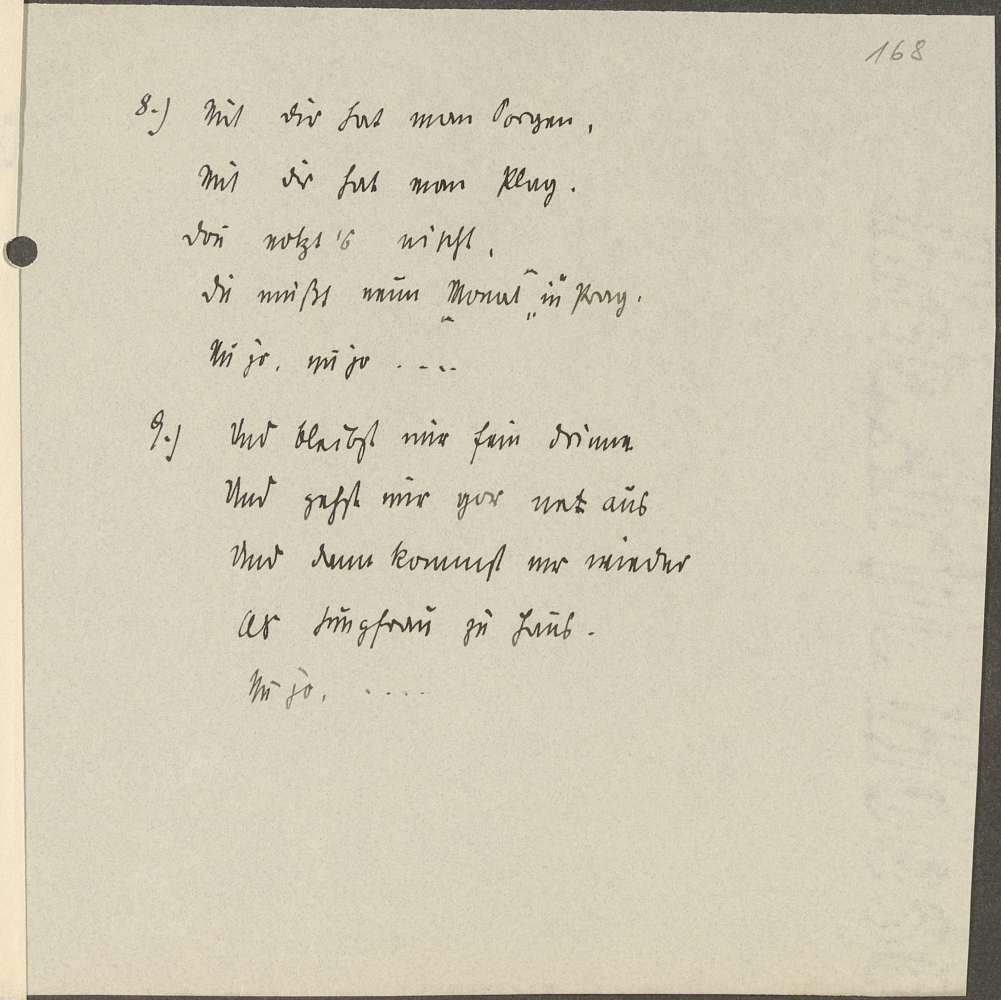 168
8.) Mit dir hat man Sorgen,
Mit dir hat man Plag.
Dou notzt 's nischt,
Du mußt neun Monat in Prag.
Nu jo, nu jo ....
9.) Und bleibst mir fein drinne
Und gehst mir gor net aus
Und dann kommst mr wieder
As Jungfrau zu Haus.
Nu jo, ....